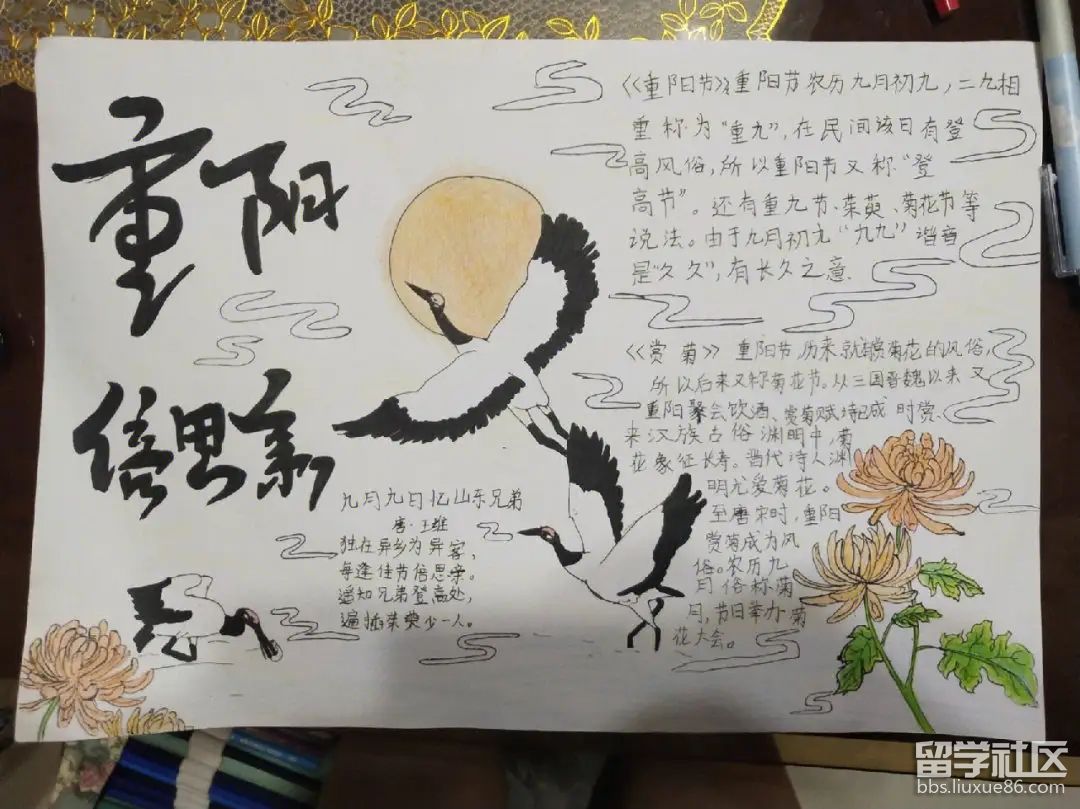 重阳
倍思亲
《重阳节》重阳节农历九月初九，二九相
重称为“重九”，在民间该日有登
高风俗，所以重阳节又称“登
高节”。还有重九节、茱萸、菊花节等
说法。由于九月初九“九九”谐音
是“久久”，有长久之意
《赏菊》重阳节，历来就有赏菊花的风俗，
所以后来又称菊花节。从三国晋魏以来又
重阳聚会饮酒、赏菊赋诗已成时赏、
来汉族古俗渊明中，菊
花象征长寿。当代诗人渊
明尤爱菊花。
至唐宋时，重阳
赏菊成为风
俗。农历九
月俗称菊
月，节日举办菊
花大会。
九月九日忆山东兄弟
唐·王维
独在异乡为异客，
每逢佳节倍思亲。
遥知兄弟登高处，
遍插茱萸少一人。
留学社区
bbs.liuxue86.com